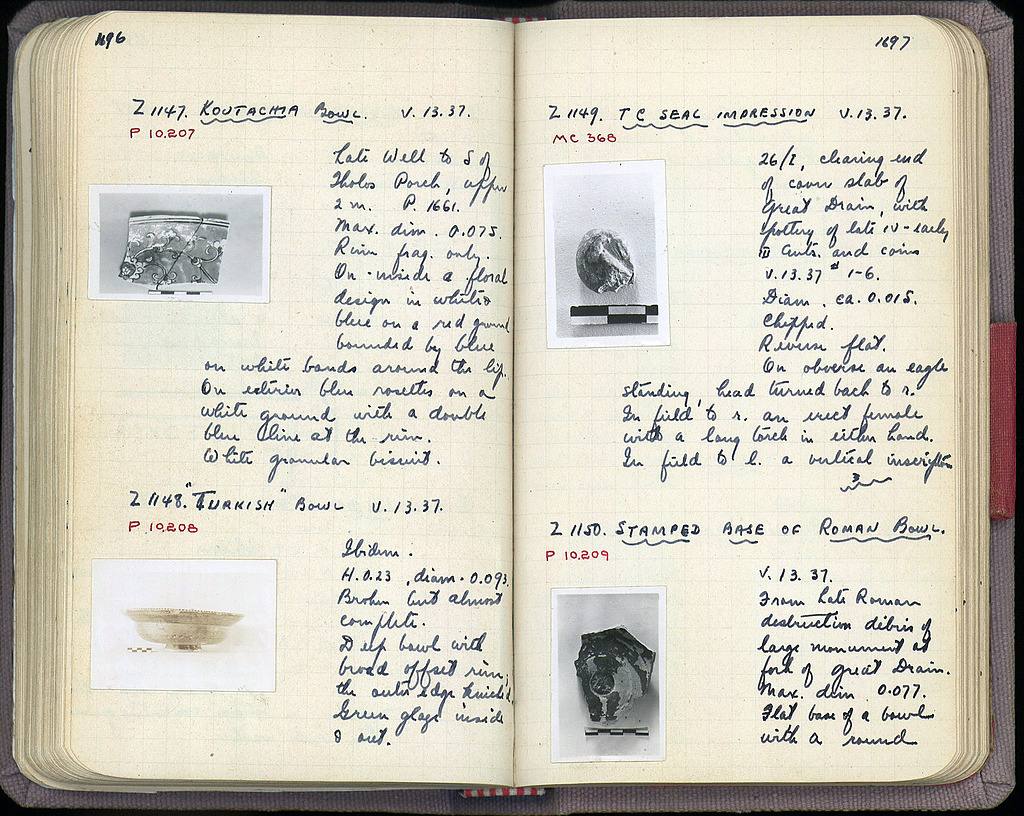 1696
Z 1147. KOUTACHIA BOWL. V.13.37.
P 10,207
Late Well to S of
Tholos Porch, upper
2 m. P. 1661.
Max. dim. 0.075.
Rim frag. only.
On inside a floral
design in white &
blue on a red ground
bounded by blue
on white bands around the lip.
On exterior blue rosettes on a
white ground with a double
blue line at the rim.
White granular biscuit.
Z 1148. "TURKISH" BOWL V.13.37.
P 10,208
Ibidem.
H. 0.23, diam. 0.093.
Broken but almost
complete.
Deep bowl with
broad offset rim,
the outer edge knicked.
Green glaze inside
& out.
1697
Z 1149. TC SEAL IMPRESSION V.13.37.
MC 368
26/Σ, clearing end
of cover slab of
Great Drain, with
pottery of late IV-early
III cents. and coins
V.13.37 # 1-6.
Diam. ca. 0.015.
Chipped.
Reverse flat.
On obverse an eagle
standing, head turned back to r.
In field to r. an erect female
with a long torch in either hand.
In field to l. a vertical inscription
Z 1150. STAMPED BASE OF ROMAN BOWL.
P 10,209
V. 13. 37.
From Late Roman
destruction débris of
large monument at
fork of Great Drain.
Max. dim 0.077.
Flat base of a bowl
with a round